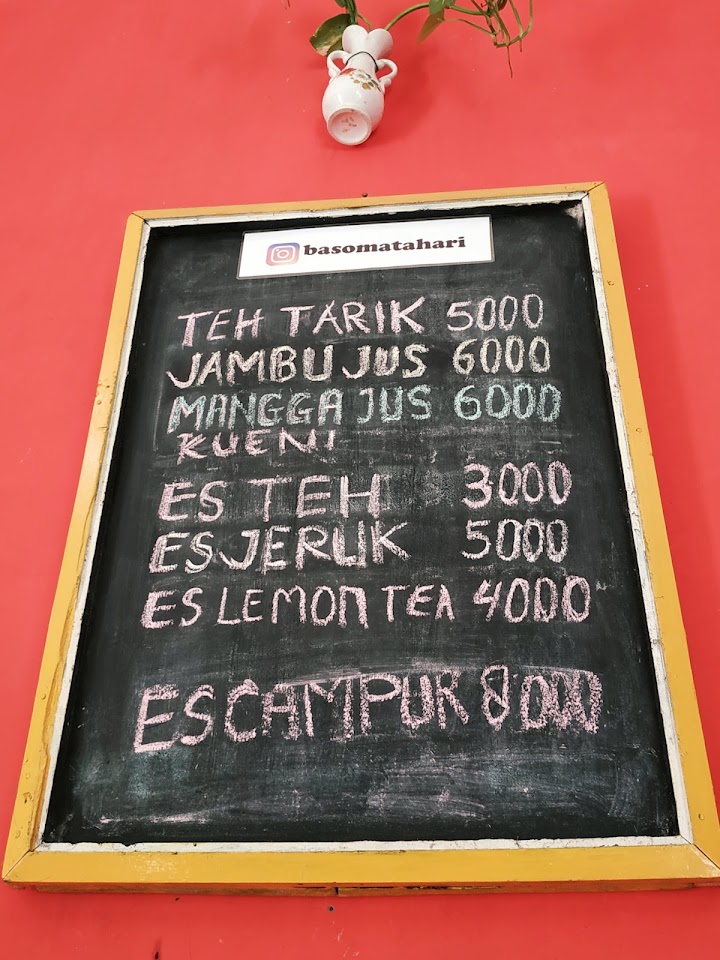 basomatahari
TEH TARIK 5000
JAMBU JUS 6000
MANGGA JUS 6000
KUENI
ES TEH 3000
ES JERUK 5000
ES LEMON TEA 4000
ES CAMPUR 8000